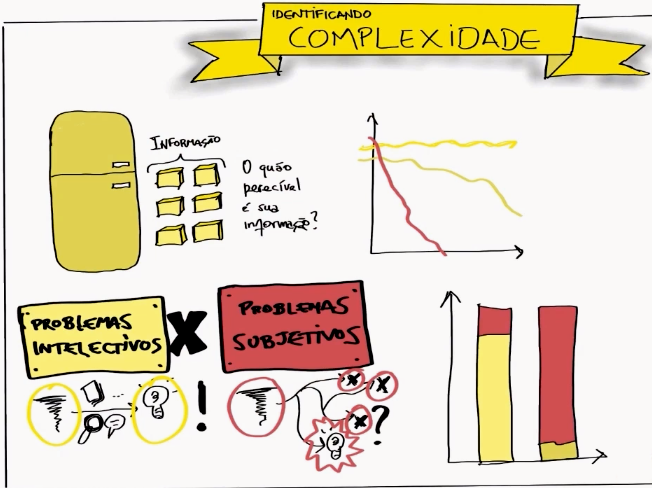 IDENTIFICANDO
COMPLEXIDADE
INFORMAÇÃO
O quão
perecível
é sua
informação?
PROBLEMAS
INTELECTIVOS
X
PROBLEMAS
SUBJETIVOS
!
X
X
X
?